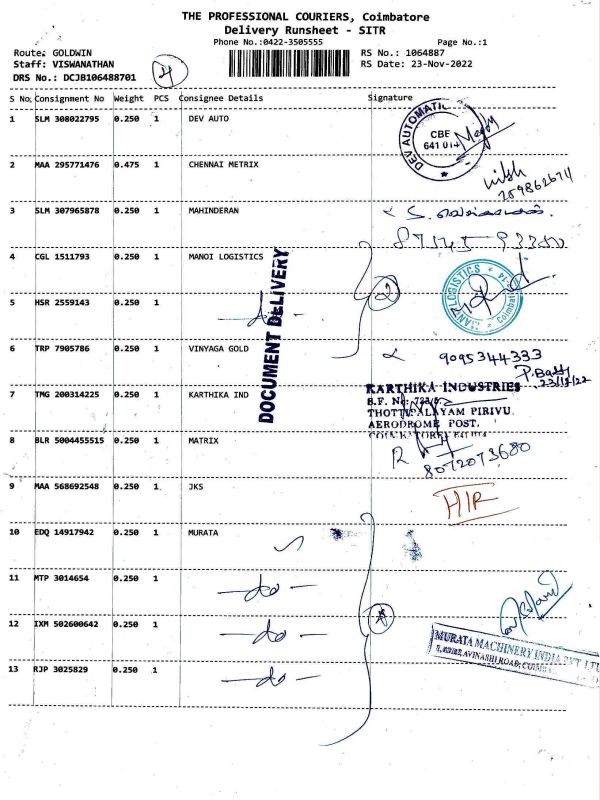 THE PROFESSIONAL COURIERS, Coimbatore
Delivery Runsheet - SITR
Phone No.:0422-3505555 Page No.:1
Route: GOLDWIN RS No.: 1064887
Staff: VISWANATHAN RS Date: 23-Nov-2022
DRS No.: DCJB106488701
S No Consignment No Weight PCS Consignee Details Signature
1 SLM 308022795 0.250 1 DEV AUTO
DEV AUTOMATIC
CBE
641 014
2 MAA 295771476 0.475 1 CHENNAI METRIX
3 SLM 307965878 0.250 1 MAHINDERAN
4 CGL 1511793 0.250 1 MANOI LOGISTICS
2
LOGISTICS
Coimbat
5 HSR 2559143 0.250 1
-do-
DOCUMENT DELIVERY
6 TRP 7905786 0.250 1 VINYAGA GOLD
9095344333
23/11/22
7 TMG 200314225 0.250 1 KARTHIKA IND
KARTHIKA INDUSTRIES
S.F. No:
THOTTIPALAYAM PIRIVU
AERODROME POST,
8 BLR 5004455515 0.250 1 MATRIX
8072073680
9 MAA 568692548 0.250 1 JKS
HIR
10 EDQ 14917942 0.250 1 MURATA
11 MTP 3014654 0.250 1
-do-
12 IXM 502600642 0.250 1
-do-
MURATA MACHINERY INDIA PVT LT
AVINASHI ROAD, COIMB
13 RJP 3025829 0.250 1
-do-